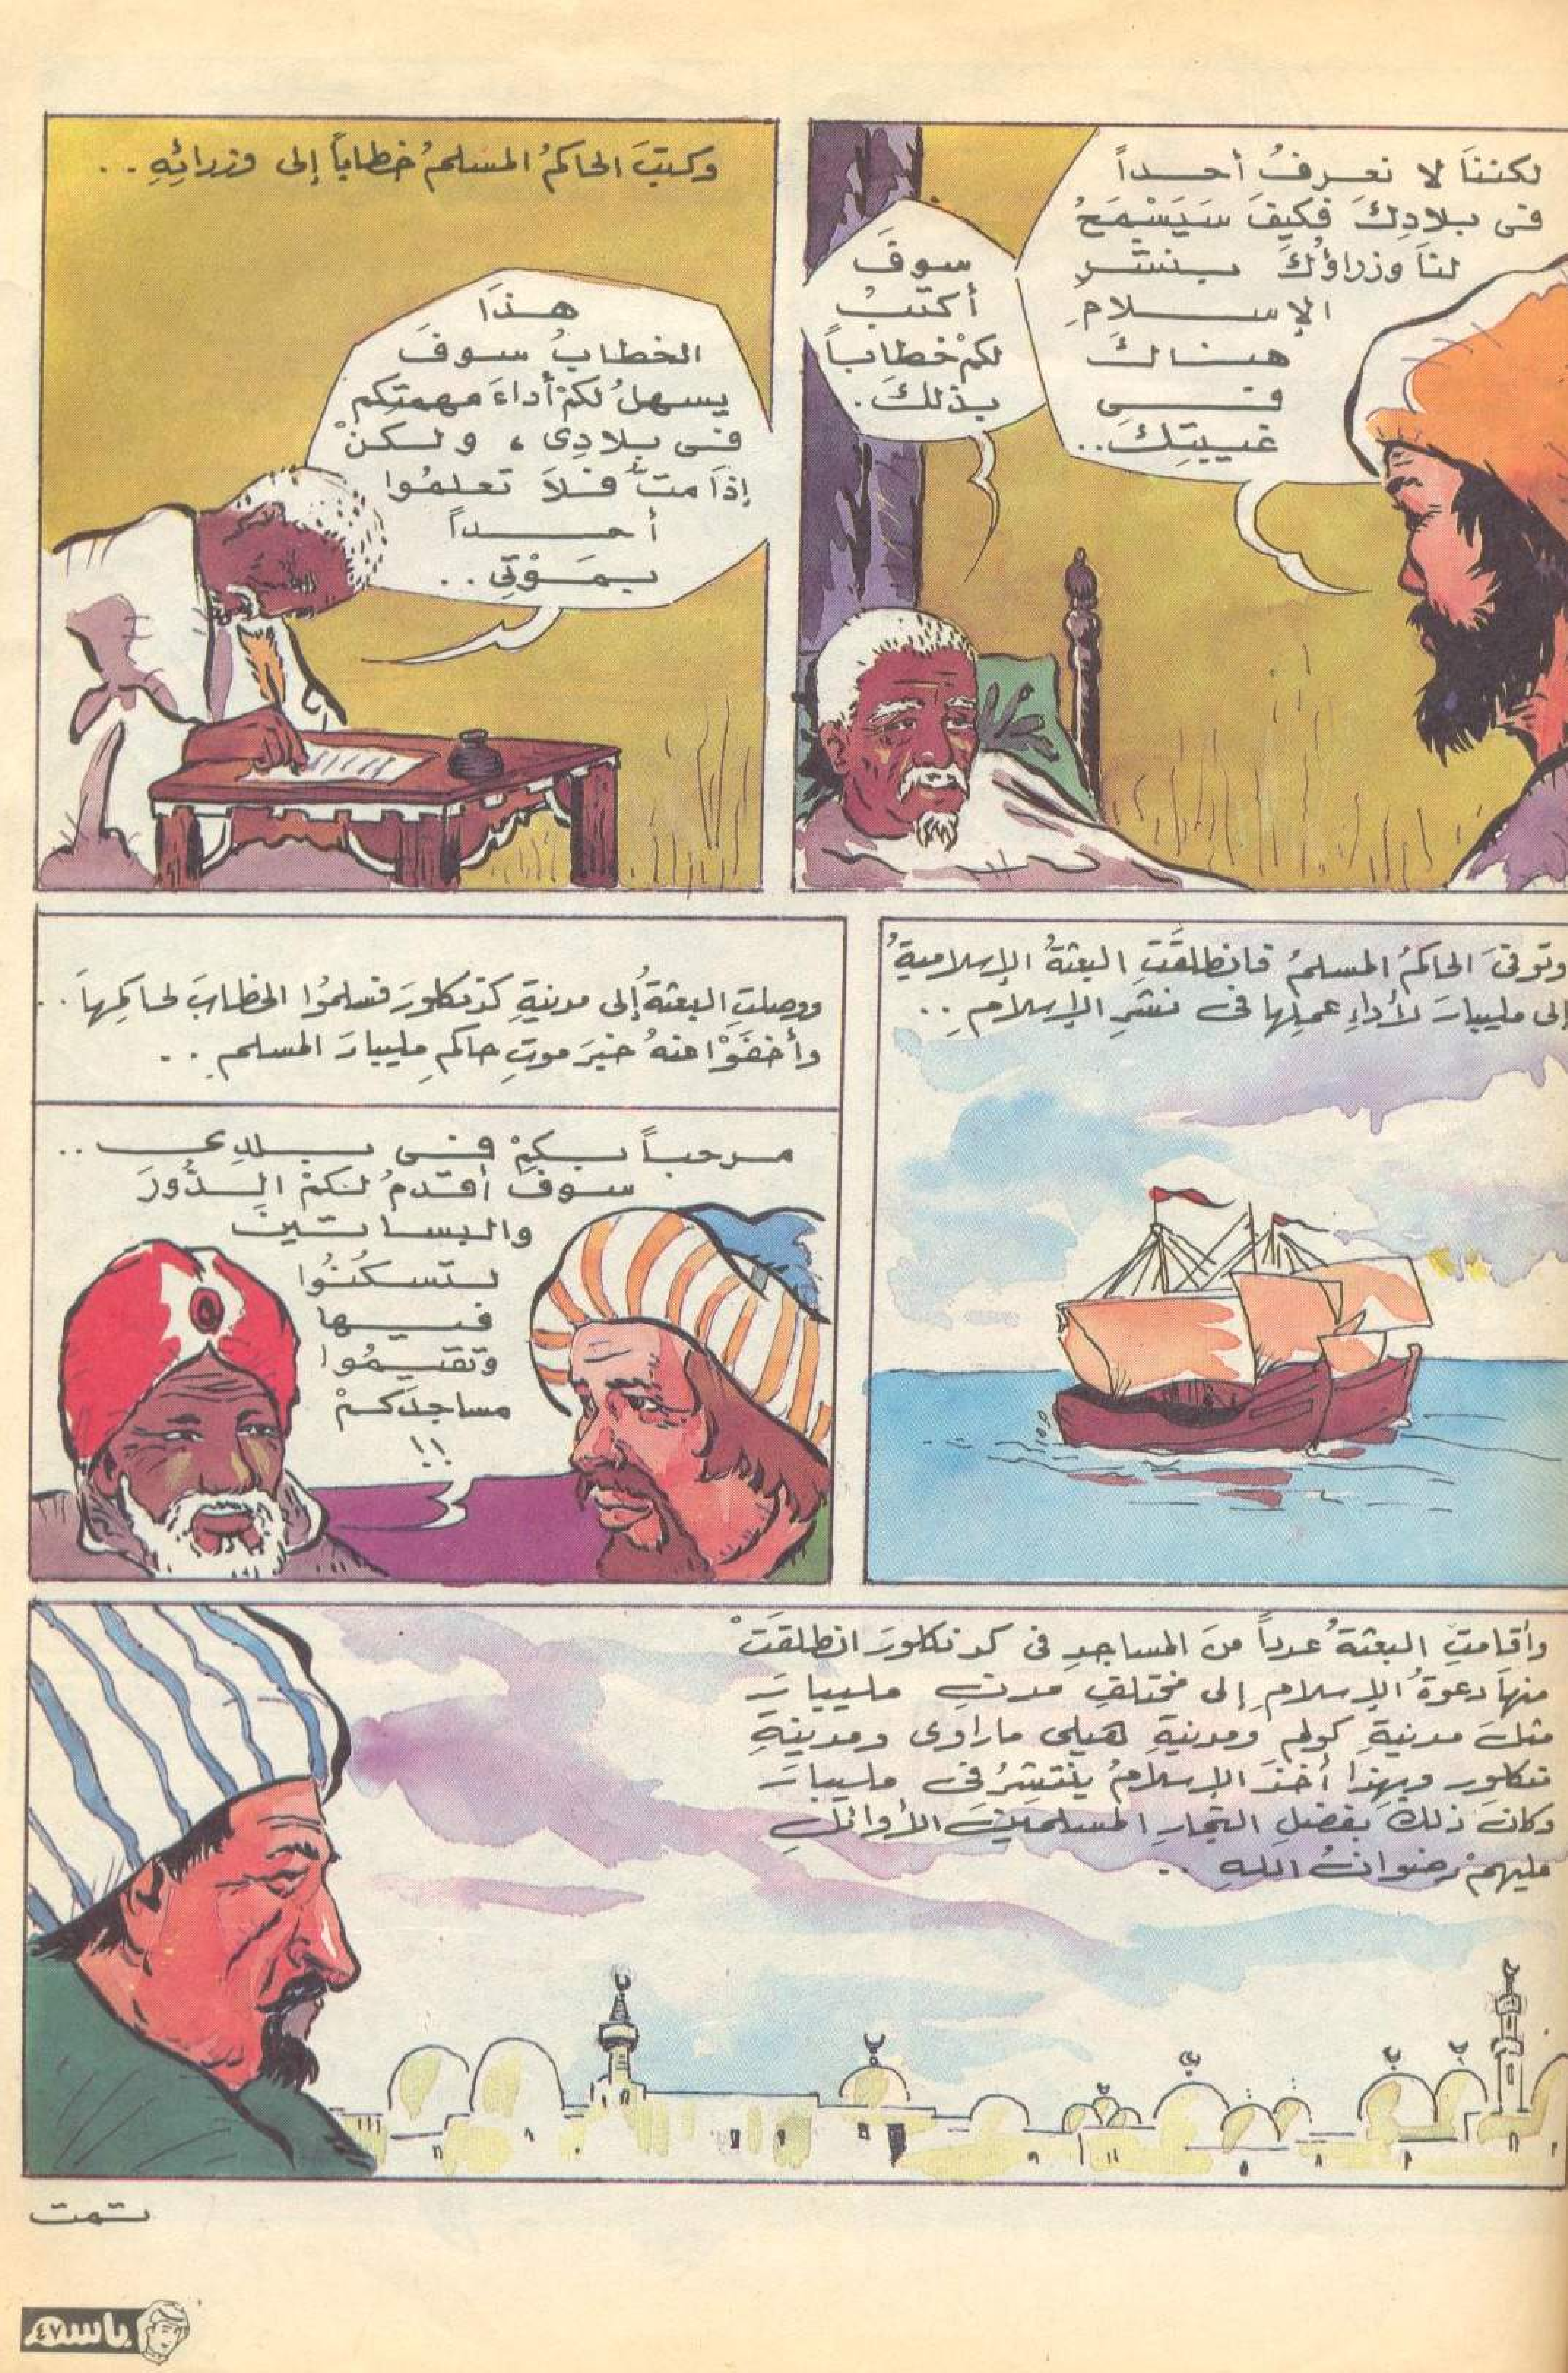 لكننَا لا نعرفُ أحداً
فى بلادِكَ فكيفَ سَيَسْمَعُ
لنَا وزراؤُكَ بنشرِ
الإسلامِ
هناكَ
فى
غيبتِكَ..
سوفَ
أكتبُ
لكمْ خطاباً
بذلكَ.
وكتبَ الحاكمُ المسلمُ خطاباً إلى وزرائِهِ..
هذَا
الخطابُ سوفَ
يسهلُ لكمْ أداءَ مهمتِكم
فى بلادِى، ولكنْ
إذَا متُّ فلاَ تعلمُوا
أحداً
بمَوْتِى..
وتوفىَ الحاكمُ المسلمُ فانطلقَتِ البعثةُ الإسلاميةُ
إلى مليبارَ لأداءِ عملِها فى نشرِ الإسلامِ..
ووصلتِ البعثةُ إلى مدينةِ كدنكلورَ فسلمُوا الخطابَ لحاكمِهاَ..
وأخفَوْا عنهُ خبرَ موتِ حاكمِ مليبارَ المسلمِ..
مرحباً بكمْ فى بلدِى..
سوفَ أقدمُ لكمْ الدُّورَ
والبساتينَ
لتسكُنُوا
فيها
وتقيمُوا
مساجدَكمْ
!!
وأقامتِ البعثةُ عدداً منَ المساجدِ فى كدنكلورَ انطلقَتْ
منهاَ دعوةُ الإسلامِ إلى مختلفِ مدنِ مليبارَ
مثلَ مدينةِ كولم ومدينةِ هيلى ماراوى ومدينةِ
منكلور وبهذا أخذَ الإسلامُ ينتشرُ فى مليبارَ
وكانَ ذلكَ بفضلِ التجارِ المسلمينَ الأوائلِ
عليهمْ رضوانُ اللهِ..
تمت
باسم
٤٧